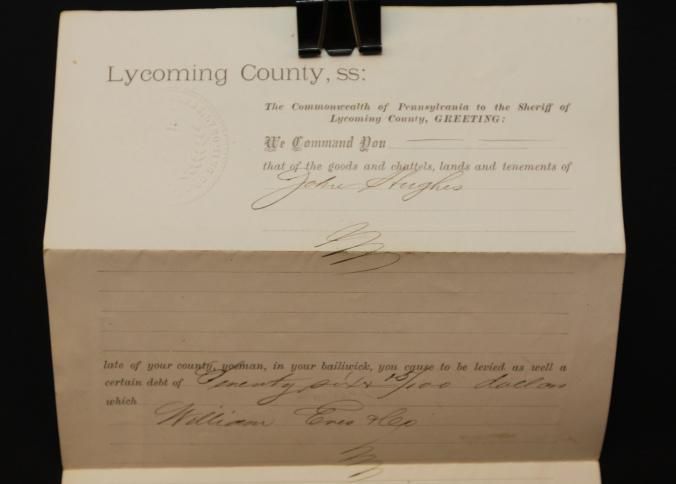 Lycoming County, ss:
The Commonwealth of Pennsylvania to the Sheriff of
Lycoming County, GREETING:
We Command You
that of the goods and chattels, lands and tenements of
John Hughes
late of your county, yeoman, in your bailiwick, you cause to be levied as well a
certain debt of Twenty six & 13/100 dollars
which
William Eves & Co